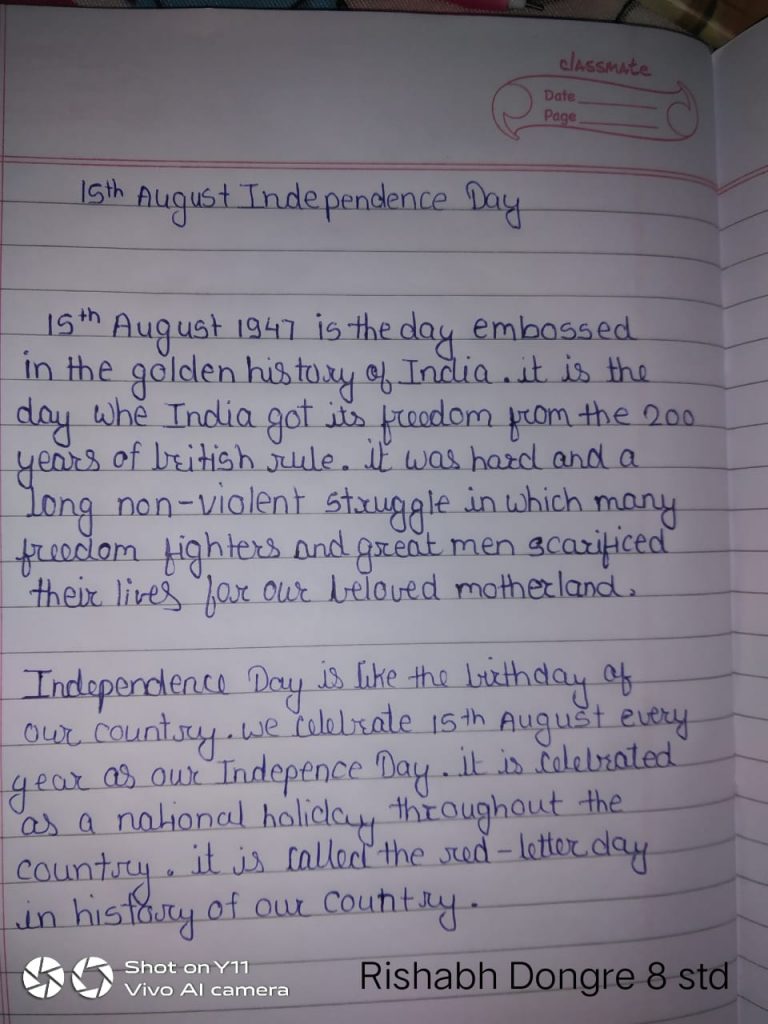 classmate
Date
Page
15th August Independence Day
15th August 1947 is the day embossed
in the golden history of India. it is the
day whe India got its freedom from the 200
years of british rule. it was hard and a
long non-violent struggle in which many
freedom fighters and great men scarificed
their lives for our beloved motherland.
Independence Day is like the birthday of
our country. we celebrate 15th August every
year as our Indepence Day. it is celebrated
as a national holiday throughout the
country. it is called the red-letter day
in history of our country.
Shot on Y11
Vivo AI camera
Rishabh Dongre 8 std